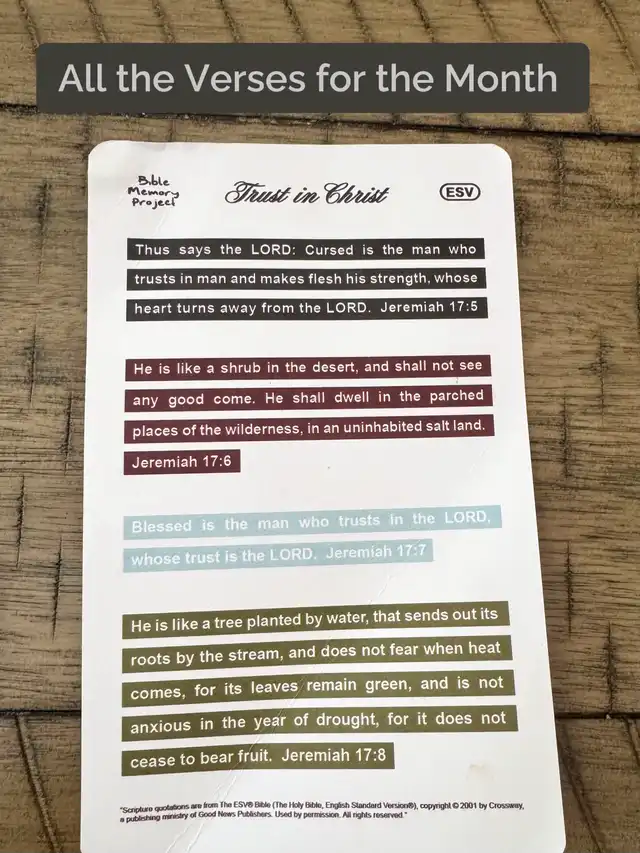 All the Verses for the Month
Bible
Memory
Project
Trust in Christ
ESV
Thus says the LORD: Cursed is the man who
trusts in man and makes flesh his strength, whose
heart turns away from the LORD. Jeremiah 17:5
He is like a shrub in the desert, and shall not see
any good come. He shall dwell in the parched
places of the wilderness, in an uninhabited salt land.
Jeremiah 17:6
Blessed is the man who trusts in the LORD,
whose trust is the LORD. Jeremiah 17:7
He is like a tree planted by water, that sends out its
roots by the stream, and does not fear when heat
comes, for its leaves remain green, and is not
anxious in the year of drought, for it does not
cease to bear fruit. Jeremiah 17:8
"Scripture quotations are from The ESV® Bible (The Holy Bible, English Standard Version®), copyright © 2001 by Crossway,
a publishing ministry of Good News Publishers. Used by permission. All rights reserved."